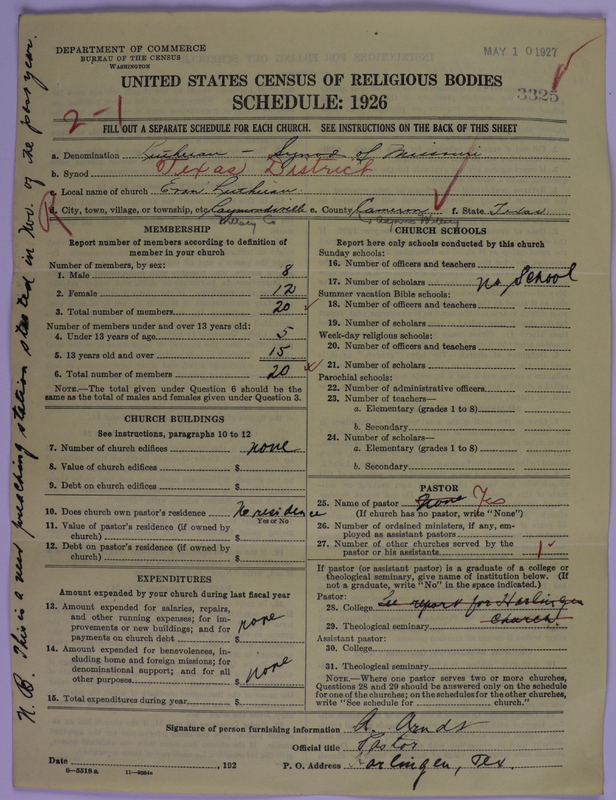 DEPARTMENT OF COMMERCE
BUREAU OF THE CENSUS
WASHINGTON
MAY 10 1927
UNITED STATES CENSUS OF RELIGIOUS BODIES
SCHEDULE: 1926
3325
2-1
FILL OUT A SEPARATE SCHEDULE FOR EACH CHURCH. SEE INSTRUCTIONS ON THE BACK OF THIS SHEET
a. Denomination Lutheran - Synod of Missouri
b. Synod Texas District
c. Local name of church Evan. Lutheran
d. City, town, village, or township, etc. Raymondville e. County Cameron f. State Texas
Willacy Co
MEMBERSHIP
Report number of members according to definition of member in your church
Number of members, by sex:
1. Male 8
2. Female 12
3. Total number of members 20
Number of members under and over 13 years old:
4. Under 13 years of age 5
5. 13 years old and over 15
6. Total number of members 20
NOTE.—The total given under Question 6 should be the same as the total of males and females given under Question 3.
CHURCH BUILDINGS
See instructions, paragraphs 10 to 12
7. Number of church edifices none
8. Value of church edifices $
9. Debt on church edifices $
10. Does church own pastor's residence No residence
Yes or No
11. Value of pastor's residence (if owned by church) $
12. Debt on pastor's residence (if owned by church) $
EXPENDITURES
Amount expended by your church during last fiscal year
13. Amount expended for salaries, repairs, and other running expenses; for improvements or new buildings; and for payments on church debt $ none
14. Amount expended for benevolences, including home and foreign missions; for denominational support; and for all other purposes $ none
15. Total expenditures during year $
CHURCH SCHOOLS
Report here only schools conducted by this church
Sunday schools:
16. Number of officers and teachers
17. Number of scholars no School
Summer vacation Bible schools:
18. Number of officers and teachers
19. Number of scholars
Week-day religious schools:
20. Number of officers and teachers
21. Number of scholars
Parochial schools:
22. Number of administrative officers
23. Number of teachers—
a. Elementary (grades 1 to 8)
b. Secondary
24. Number of scholars—
a. Elementary (grades 1 to 8)
b. Secondary
PASTOR
25. Name of pastor none Yes
(If church has no pastor, write "None")
26. Number of ordained ministers, if any, employed as assistant pastors
27. Number of other churches served by the pastor or his assistants 1
If pastor (or assistant pastor) is a graduate of a college or theological seminary, give name of institution below. (If not a graduate, write "No" in the space indicated.)
Pastor:
28. College See report for Harlingen
29. Theological seminary church!
Assistant pastor:
30. College
31. Theological seminary
NOTE.—Where one pastor serves two or more churches, Questions 28 and 29 should be answered only on the schedule for one of the churches; on the schedules for the other churches, write "See schedule for church."
Signature of person furnishing information A. Arndt
Official title Pastor
Date , 192 P. O. Address Harlingen, Tex.
N.B. This is a new preaching station started in Nov. of the past year.